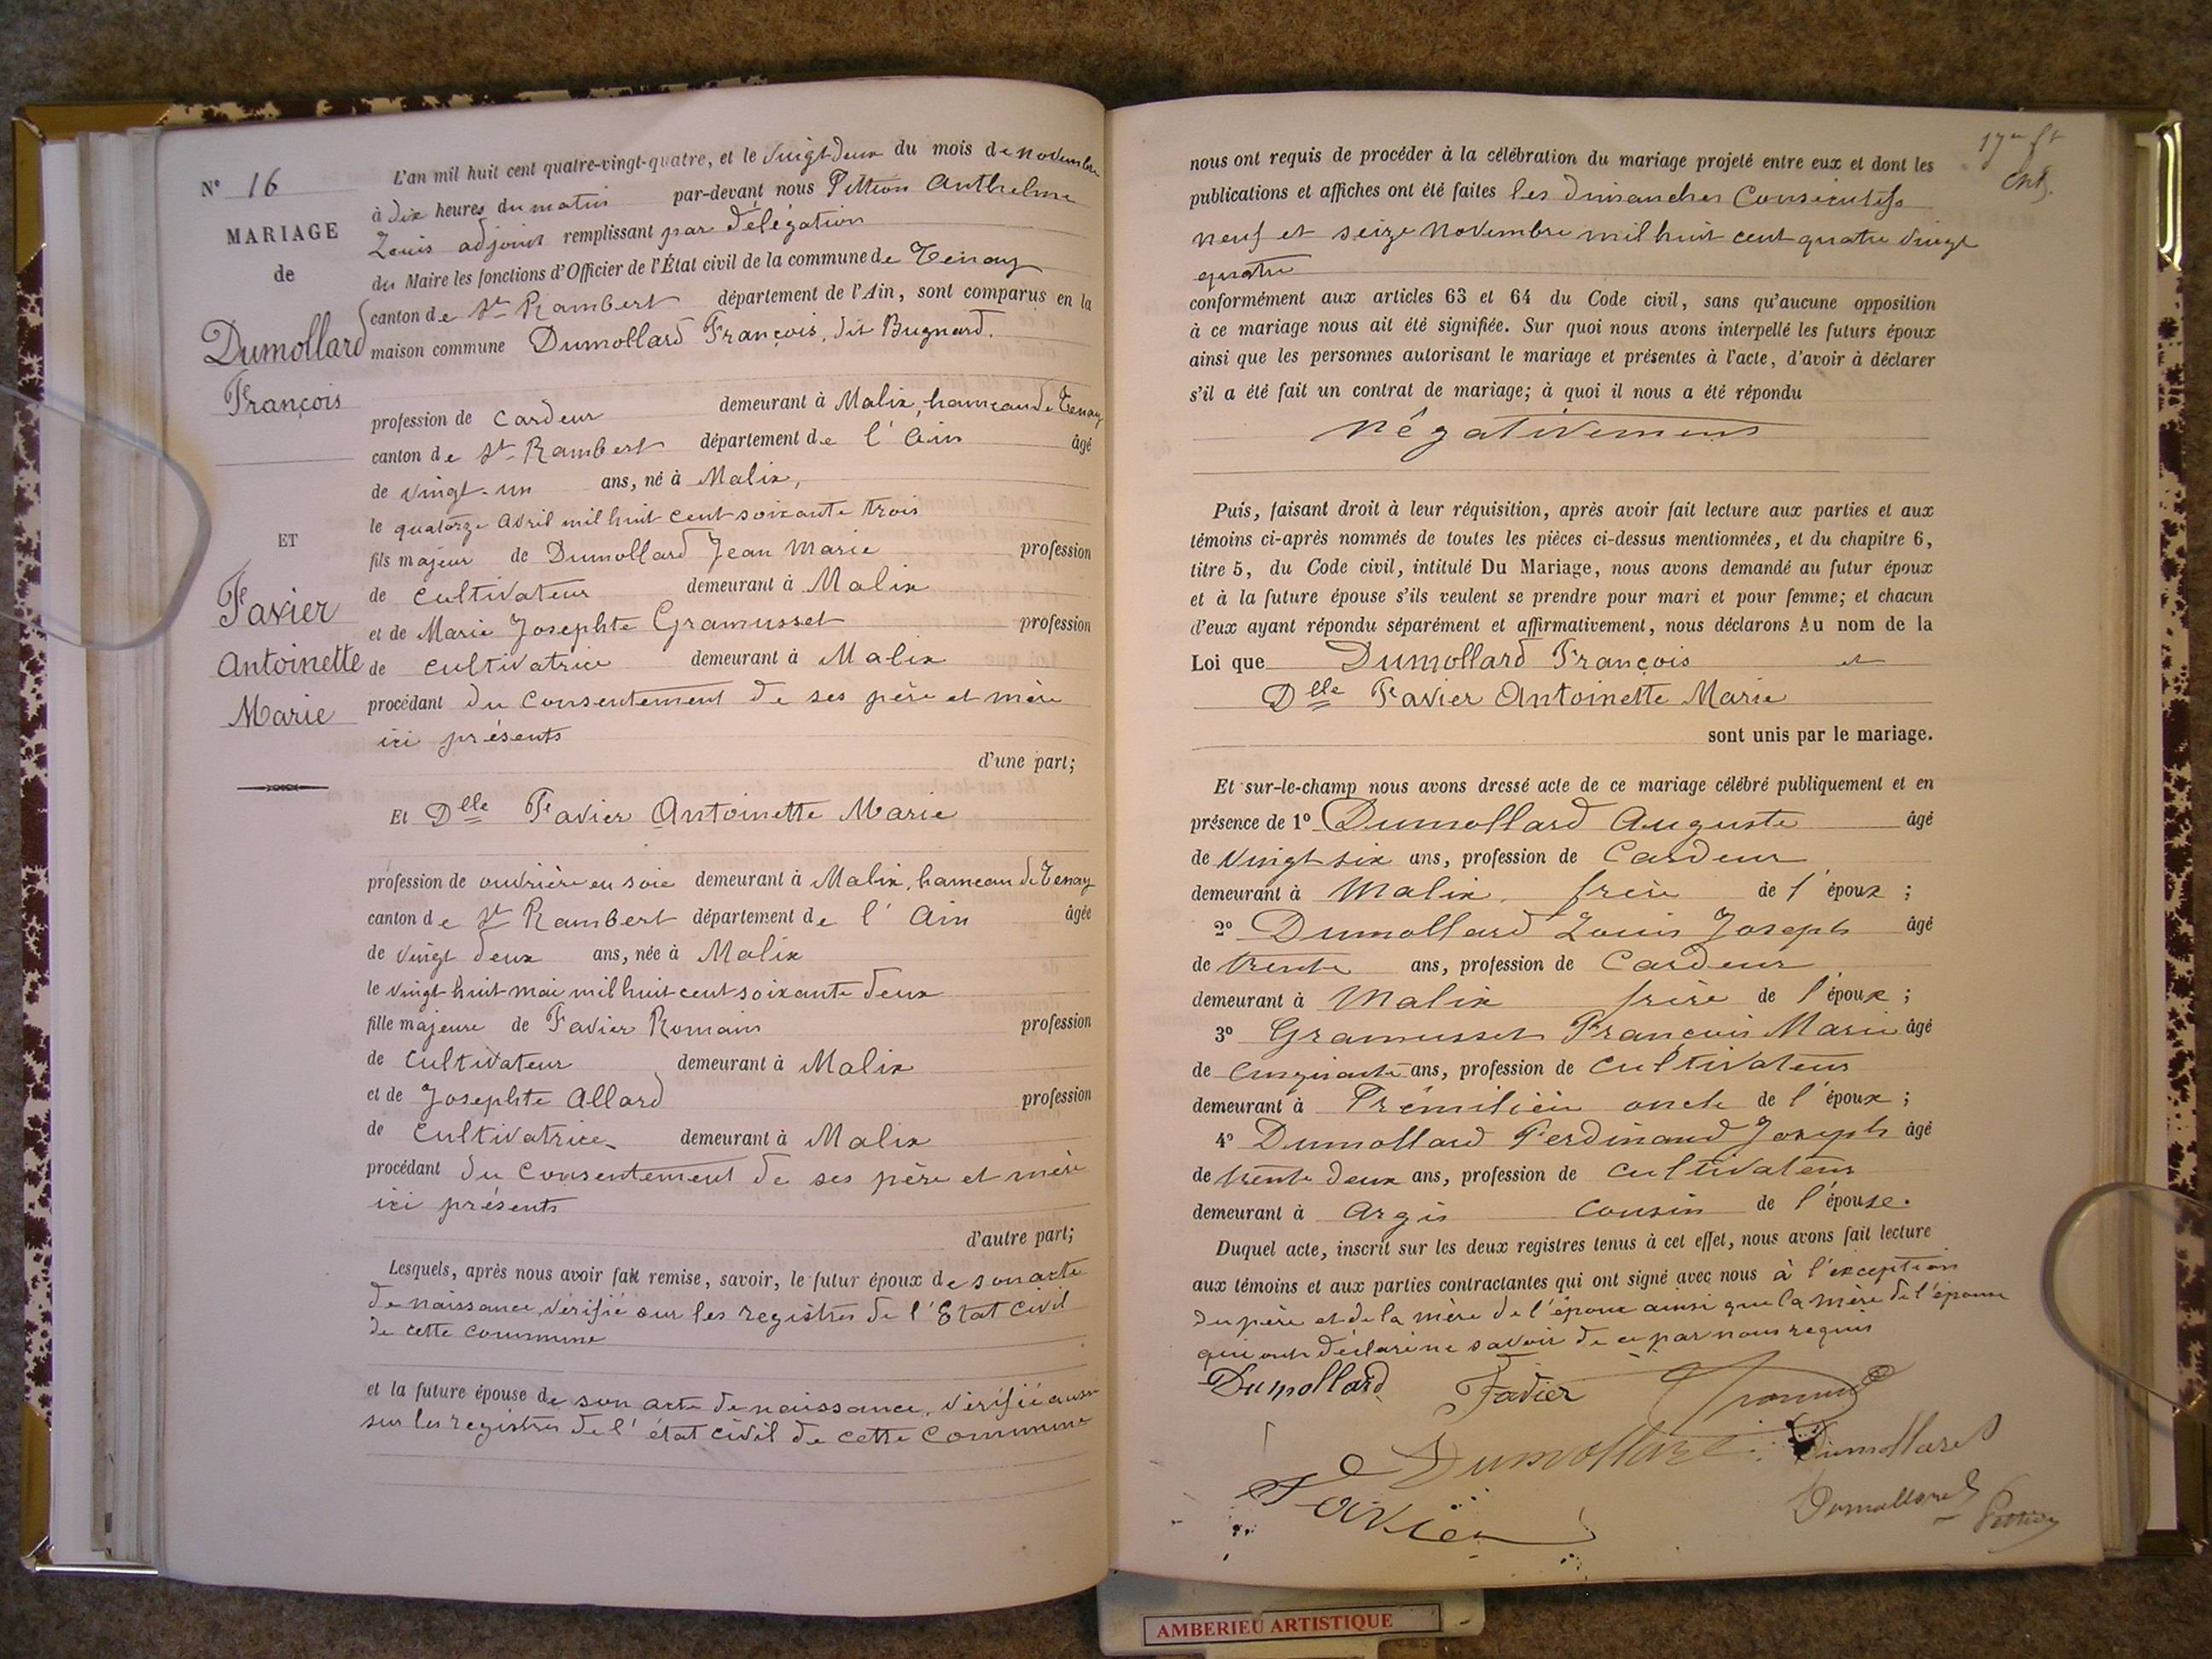 N° 16
MARIAGE
de
Dumollard
François
ET
Favier
Antoinette
Marie
L'an mil huit cent quatre-vingt-quatre, et le vingt deux du mois de novembre
à dix heures du matin par-devant nous Pittion Anthelme
Louis adjoint remplissant par délégation
du Maire les fonctions d'Officier de l'État civil de la commune de Tenay
canton de St Rambert département de l'Ain, sont comparus en la
maison commune Dumollard François, dit Bugnard.
profession de cardeur demeurant à Malix, hameau de Tenay
canton de St Rambert département de l'Ain âgé
de vingt-un ans, né à Malix,
le quatorze avril mil huit cent soixante trois
fils majeur de Dumollard Jean Marie profession
de cultivateur demeurant à Malix
et de Marie Josephte Gramusset profession
de cultivatrice demeurant à Malix
procédant du consentement de ses père et mère
ici présents
d'une part;
Et Dlle Favier Antoinette Marie
profession de ouvrière en soie demeurant à Malix, hameau de Tenay
canton de St Rambert département de l'Ain âgée
de vingt deux ans, née à Malix
le vingt-huit mai mil huit cent soixante deux
fille majeure de Favier Romain profession
de cultivateur demeurant à Malix
et de Josephte Allard profession
de cultivatrice demeurant à Malix
procédant du consentement de ses père et mère
ici présents
d'autre part;
Lesquels, après nous avoir fait remise, savoir, le futur époux de son acte
de naissance, vérifié sur les registres de l'Etat civil
de cette commune
et la future épouse de son acte de naissance, vérifié aussi
sur les registres de l'état civil de cette commune
nous ont requis de procéder à la célébration du mariage projeté entre eux et dont les
publications et affiches ont été faites les dimanches consécutifs
neuf et seize novembre mil huit cent quatre vingt
quatre
conformément aux articles 63 et 64 du Code civil, sans qu'aucune opposition
à ce mariage nous ait été signifiée. Sur quoi nous avons interpellé les futurs époux
ainsi que les personnes autorisant le mariage et présentes à l'acte, d'avoir à déclarer
s'il a été fait un contrat de mariage; à quoi il nous a été répondu
négativement
Puis, faisant droit à leur réquisition, après avoir fait lecture aux parties et aux
témoins ci-après nommés de toutes les pièces ci-dessus mentionnées, et du chapitre 6,
titre 5, du Code civil, intitulé Du Mariage, nous avons demandé au futur époux
et à la future épouse s'ils veulent se prendre pour mari et pour femme; et chacun
d'eux ayant répondu séparément et affirmativement, nous déclarons Au nom de la
Loi que Dumollard François et
Dlle Favier Antoinette Marie
sont unis par le mariage.
Et sur-le-champ nous avons dressé acte de ce mariage célébré publiquement et en
présence de 1° Dumollard Auguste âgé
de vingt six ans, profession de cardeur
demeurant à Malix, frère de l'époux;
2° Dumollard Louis Joseph âgé
de trente ans, profession de cardeur
demeurant à Malix frère de l'époux;
3° Gramusset François Marie âgé
de cinquante ans, profession de cultivateur
demeurant à Prémilieu oncle de l'époux;
4° Dumollard Ferdinand Joseph âgé
de trente deux ans, profession de cultivateur
demeurant à Argis cousin de l'épouse.
Duquel acte, inscrit sur les deux registres tenus à cet effet, nous avons fait lecture
aux témoins et aux parties contractantes qui ont signé avec nous à l'exception
du père et de la mère de l'époux ainsi que la mère de l'épouse
qui ont déclaré ne savoir de ce par nous requis
Dumollard Favier
Dumollard Dumollard
Favier Dumollard Pittion
AMBERIEU ARTISTIQUE